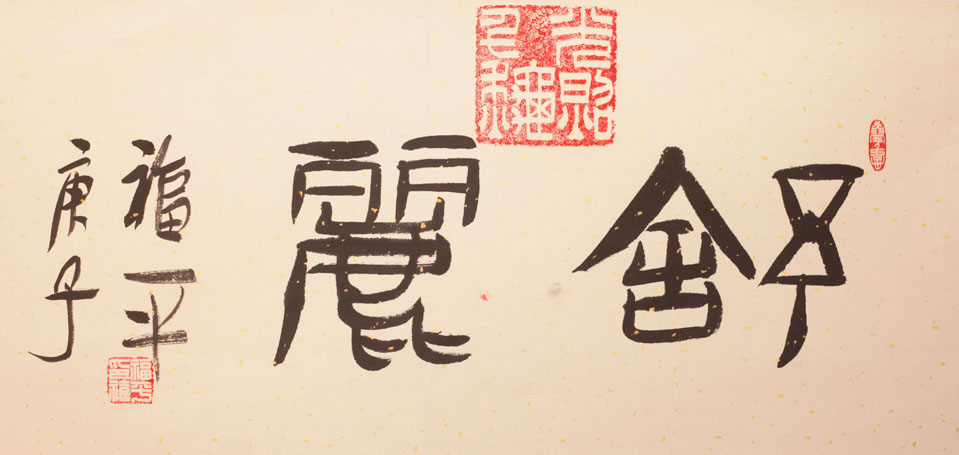 舒麗
福平
庚子